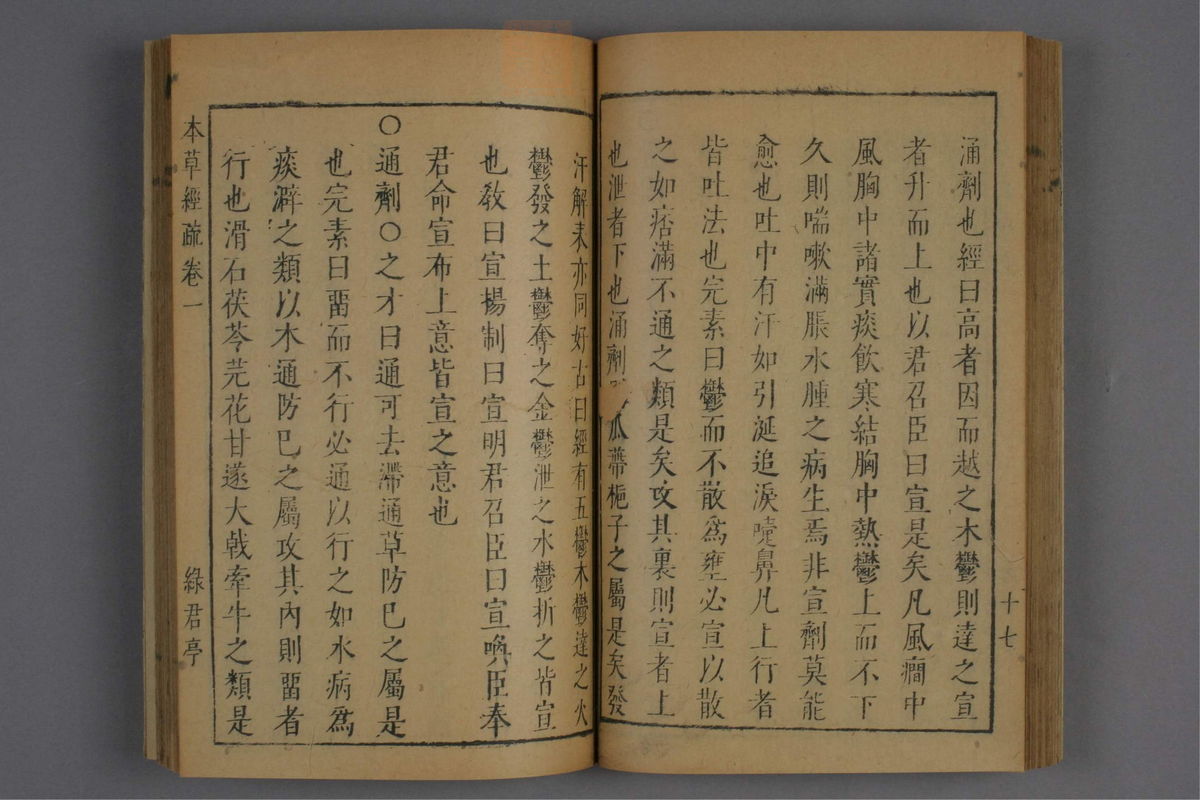 涌劑也經曰高者因而越之木鬱則達之宣
者升而上也以君召臣曰宣是矣凡風癇中
風胸中諸實痰飲寒結胸中熱鬱上而不下
久則喘嗽滿脹水腫之病生焉非宣劑莫能
愈也吐中有汗如引涎追淚嚏鼻凡上行者
皆吐法也完素曰鬱而不散爲壅必宣以散
之如痞滿不通之類是矣攻其裏則宣者上
也泄者下也涌劑瓜蒂梔子之屬是矣發
十七
汗解表亦同好古曰經有五鬱木鬱達之火
鬱發之土鬱奪之金鬱泄之水鬱折之皆宣
也敎曰宣揚制曰宣明君召臣曰宣喚臣奉
君命宣布上意皆宣之意也
○通劑○之才曰通可去滯通草防巳之屬是
也完素曰畱而不行必通以行之如水病爲
痰澼之類以木通防巳之屬攻其內則畱者
行也滑石茯苓芫花甘遂大戟牽牛之類是
本草經疏 卷一 綠君亭